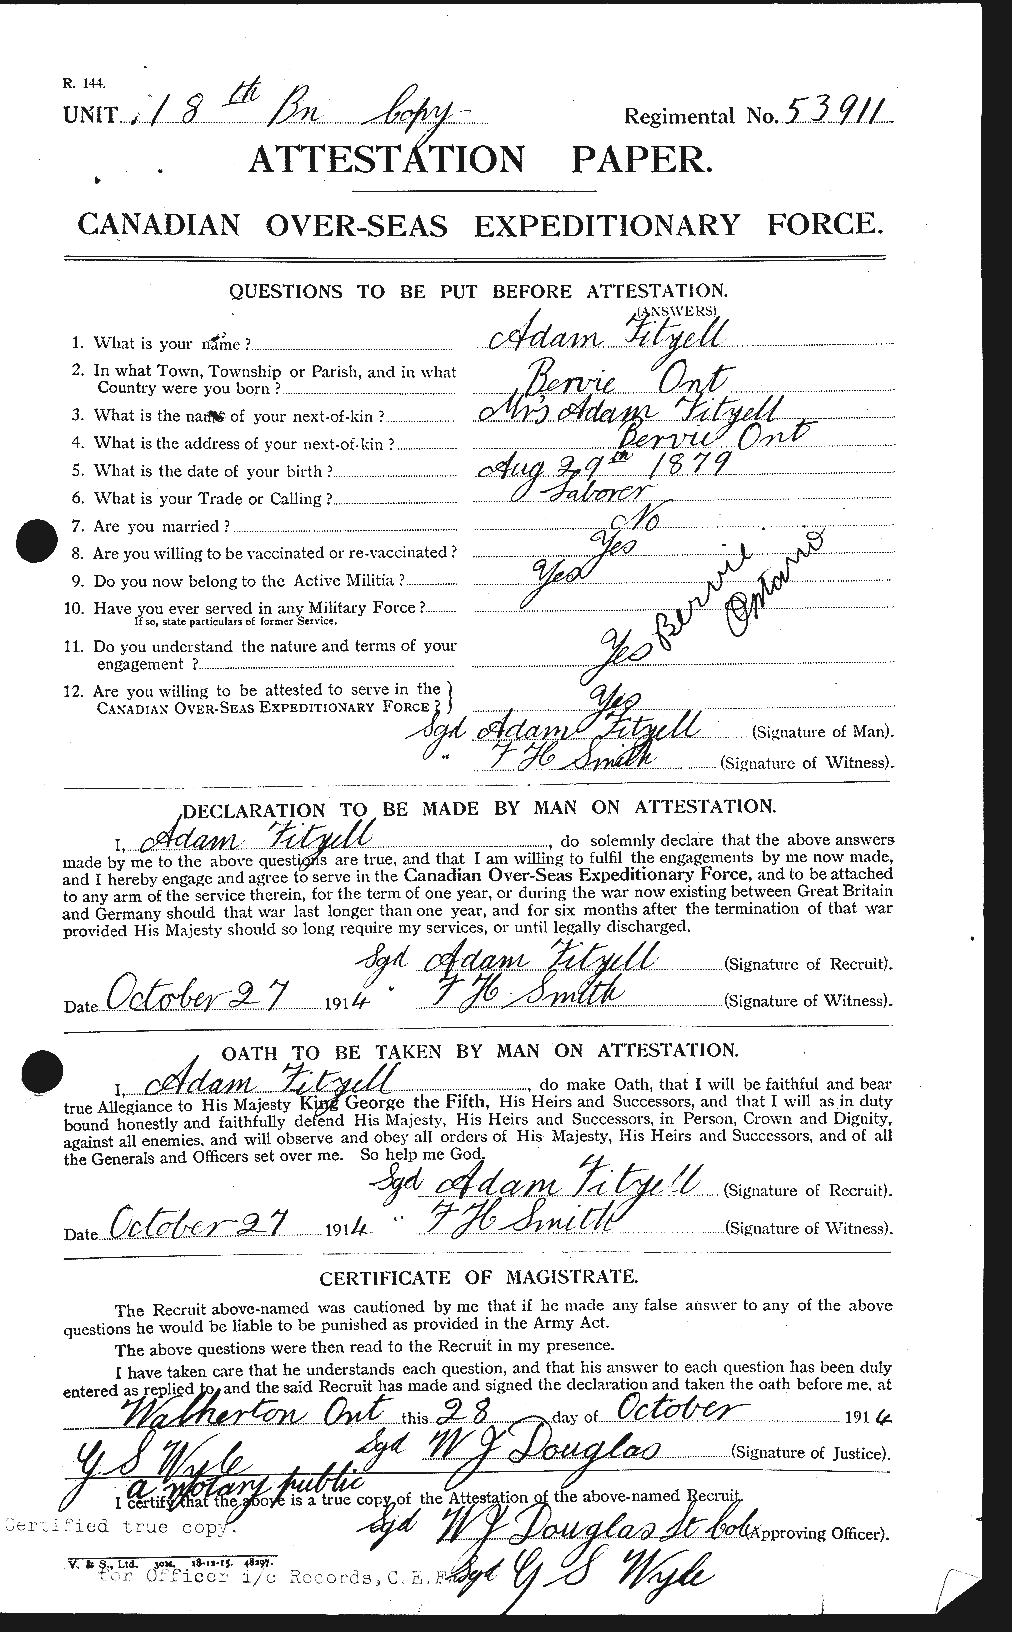 R. 144.
UNIT 18th Bn Copy Regimental No. 53911
ATTESTATION PAPER.
CANADIAN OVER-SEAS EXPEDITIONARY FORCE.
QUESTIONS TO BE PUT BEFORE ATTESTATION.
(ANSWERS)
1. What is your name? Adam Fitzell
2. In what Town, Township or Parish, and in what
Country were you born? Bervie Ont
3. What is the name of your next-of-kin? Mrs Adam Fitzell
4. What is the address of your next-of-kin? Bervie Ont
5. What is the date of your birth? Aug 29th 1879
6. What is your Trade or Calling? Laborer
7. Are you married? No
8. Are you willing to be vaccinated or re-vaccinated? Yes
9. Do you now belong to the Active Militia? Yes
Bervie
Ontario
10. Have you ever served in any Military Force?
If so, state particulars of former Service.
11. Do you understand the nature and terms of your
engagement? Yes
12. Are you willing to be attested to serve in the
CANADIAN OVER-SEAS EXPEDITIONARY FORCE? Yes
Sgd Adam Fitzell (Signature of Man).
" F H Smith (Signature of Witness).
DECLARATION TO BE MADE BY MAN ON ATTESTATION.
I, Adam Fitzell, do solemnly declare that the above answers
made by me to the above questions are true, and that I am willing to fulfil the engagements by me now made,
and I hereby engage and agree to serve in the Canadian Over-Seas Expeditionary Force, and to be attached
to any arm of the service therein, for the term of one year, or during the war now existing between Great Britain
and Germany should that war last longer than one year, and for six months after the termination of that war
provided His Majesty should so long require my services, or until legally discharged.
Sgd Adam Fitzell (Signature of Recruit).
Date October 27 1914 " F H Smith (Signature of Witness).
OATH TO BE TAKEN BY MAN ON ATTESTATION.
I, Adam Fitzell, do make Oath, that I will be faithful and bear
true Allegiance to His Majesty King George the Fifth, His Heirs and Successors, and that I will as in duty
bound honestly and faithfully defend His Majesty, His Heirs and Successors, in Person, Crown and Dignity,
against all enemies, and will observe and obey all orders of His Majesty, His Heirs and Successors, and of all
the Generals and Officers set over me. So help me God.
Sgd Adam Fitzell (Signature of Recruit).
Date October 27 1914 " F H Smith (Signature of Witness).
CERTIFICATE OF MAGISTRATE.
The Recruit above-named was cautioned by me that if he made any false answer to any of the above
questions he would be liable to be punished as provided in the Army Act.
The above questions were then read to the Recruit in my presence.
I have taken care that he understands each question, and that his answer to each question has been duly
entered as replied to, and the said Recruit has made and signed the declaration and taken the oath before me, at
Walkerton Ont this 28 day of October 1914
G S Wyle Sgd W J Douglas (Signature of Justice).
a notary public
I certify that the above is a true copy of the Attestation of the above-named Recruit.
Certified true copy.
Sgd W J Douglas Lt Col (Approving Officer).
V. & S., Ltd. 30M. 18-12-15. 48297.
for Officer i/c Records, C.E.F. Sgd G S Wyle